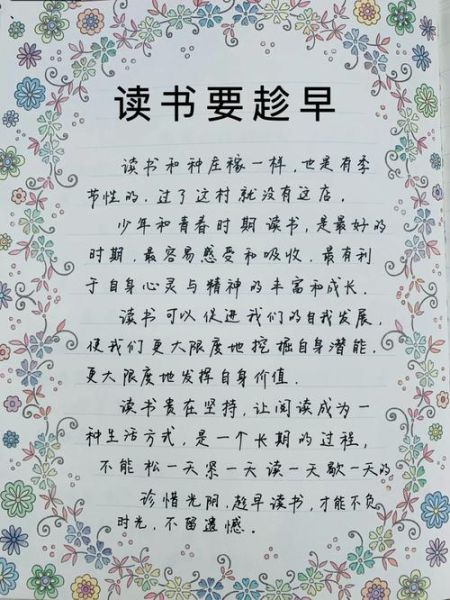 读书要趁早
读书和种庄稼一样,也是有季
节性的,过了这村就没有这店。
少年和青春时期读书,是最好的
时期,最容易感受和吸收,最有利
于自身心灵与精神的丰富和成长.
读书可以促进我们的自我发展,
使我们更大限度地挖掘自身潜能.
更大限度地发挥自身价值.
读书贵在坚持,让阅读成为一
种生活方式,是一个长期的过程,
不能松一天紧一天读一天歇一天的
珍惜光阴,趁早读书,才能不负
时光,不留遗憾.